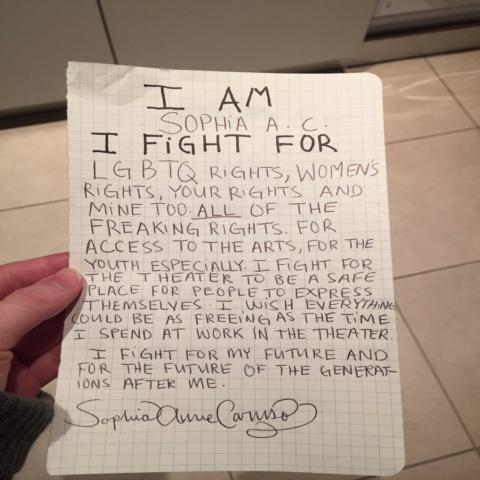 I AM
SOPHiA A. C.
I FiGHT FOR
LGBTQ RiGHTS, WOMEN'S
RiGHTS, YOUR RiGHTS AND
MiNE TOO. ALL OF THE
FREAKING RiGHTS. FOR
ACCESS TO THE ARTS, FOR THE
YOUTH ESPECIALLY. I FIGHT FOR
THE THEATER TO BE A SAFE
PLACE FOR PEOPLE TO EXPRESS
THEMSELVES. I WISH EVERYTHING
COULD BE AS FREEING AS THE TIME
I SPEND AT WORK IN THE THEATER.
I FIGHT FOR MY FUTURE AND
FOR THE FUTURE OF THE GENERAT-
IONS AFTER ME.
Sophia Anne Caruso